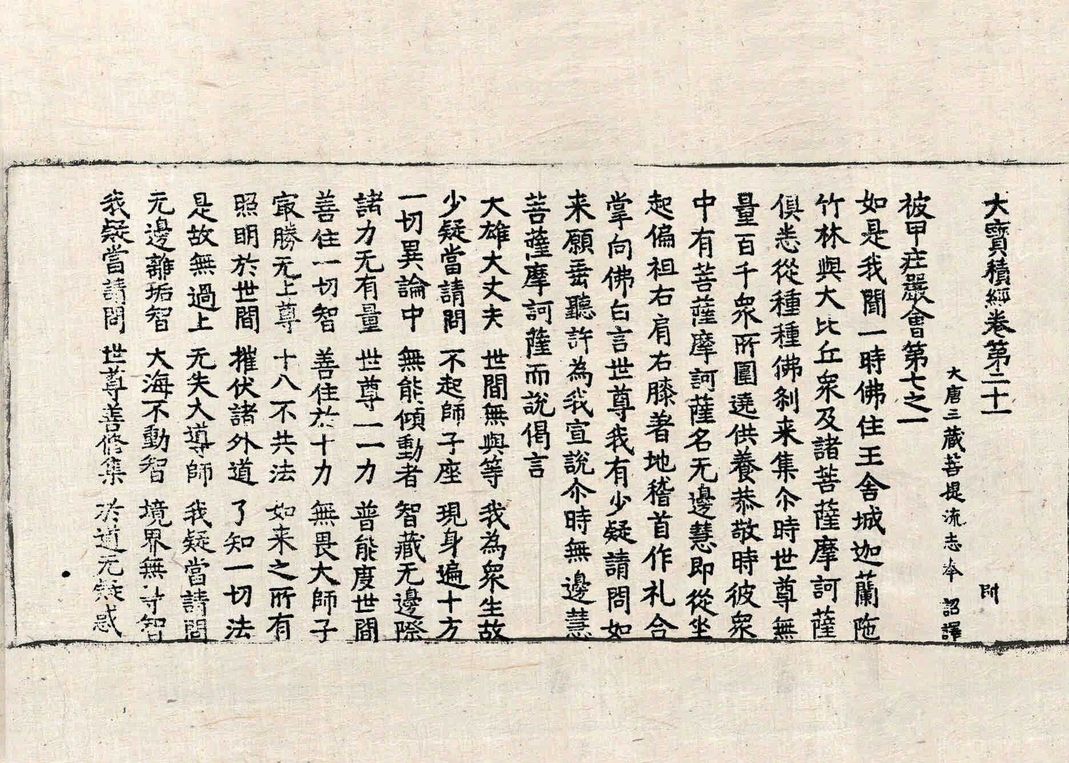 大寶積經卷第二十一 附
大唐三蔵菩提流志奉 詔譯
被甲莊嚴會第七之一
如是我聞一時佛住王舍城迦蘭陁
竹林與大比丘衆及諸菩薩摩訶薩
俱悉從種種佛刹来集尒時世尊無
量百千衆所圍遶供養恭敬時彼衆
中有菩薩摩訶薩名无邊慧即從坐
起偏袒右肩右膝著地稽首作礼合
掌向佛白言世尊我有少疑請問如
来願垂聽許為我宣說尒時無邊慧
菩薩摩訶薩而說偈言
大雄大丈夫 世間無與等 我為衆生故
少疑當請問 不起師子座 現身遍十方
一切異論中 無能傾動者 智藏无邊際
諸力无有量 世尊一一力 普能度世間
善住一切智 善住於十力 無畏大師子
㝡勝无上尊 十八不共法 如来之所有
照明於世間 摧伏諸外道 了知一切法
是故無過上 无失大導師 我疑當請問
元邊離垢智 大海不動智 境界無等智
我疑當請問 世尊善修集 於道无疑惑